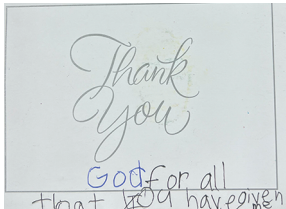 Thank
You
God for all
that you have given
me